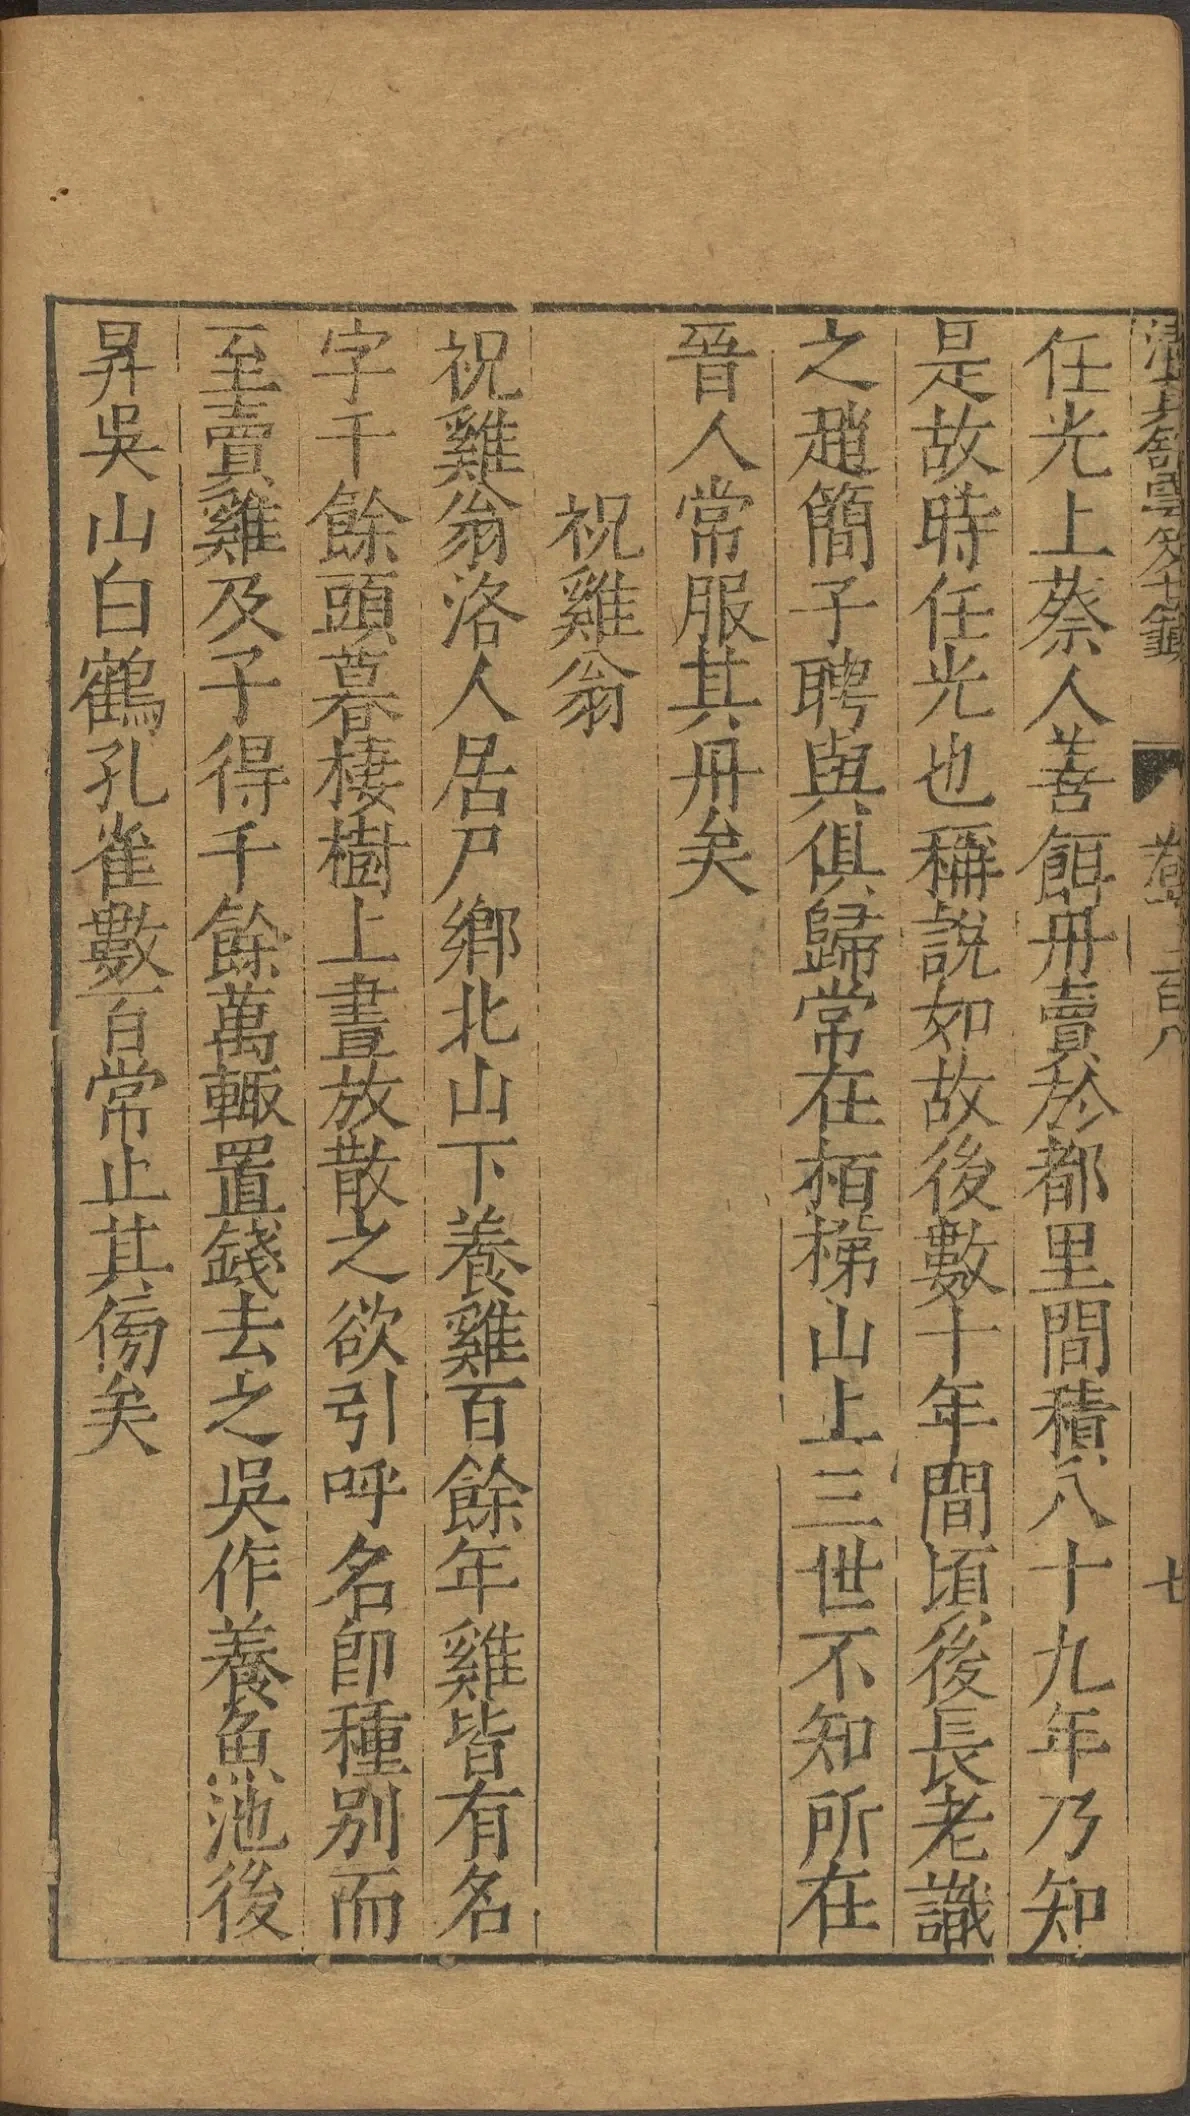 任光上蔡人善餌丹賣於都里間積八十九年乃知
是故時任光也稱說如故後數十年間頃後長老識
之趙簡子聘與俱歸常在栢梯山上三世不知所在
晉人常服其丹矣
祝雞翁
祝雞翁洛人居尸鄉北山下養雞百餘年雞皆有名
字千餘頭暮棲樹上晝放散之欲引呼名即種別而
至賣雞及子得千餘萬輒置錢去之吳作養魚池後
昇吳山白鶴孔雀數百常止其傍矣